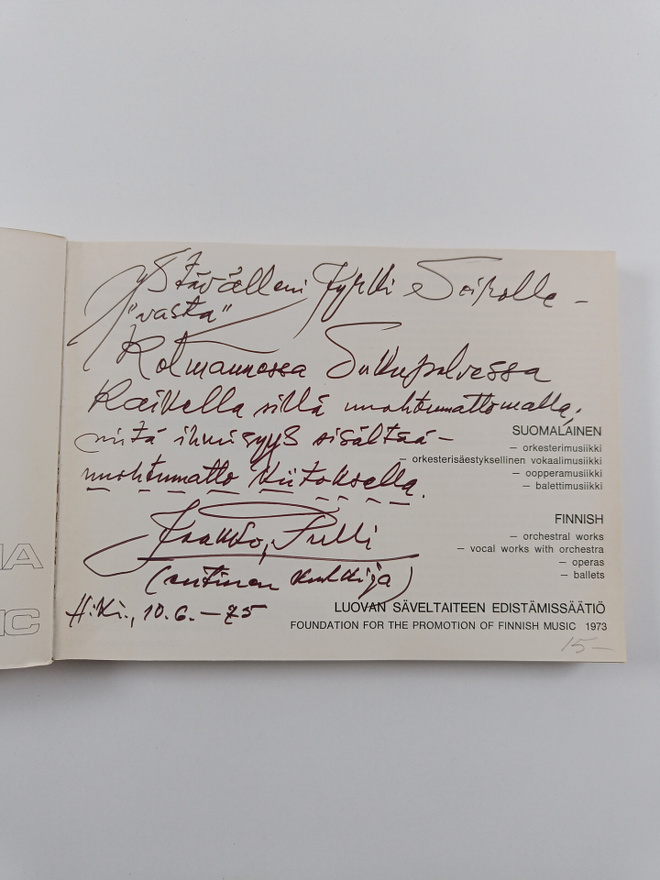 Ystävälleni Jyrki Seikolle –
"vasta"
Kolmannessa Sukupolvessa
kaikella sillä
mitä ihmisyys sisältää –
kiitoksella.
Jaakko,
(entinen kulkija)
H:ki., 10.6. – 75
SUOMALAINEN
– orkesterimusiikki
– orkesterisäestyksellinen vokaalimusiikki
– oopperamusiikki
– balettimusiikki
FINNISH
– orchestral works
– vocal works with orchestra
– operas
– ballets
LUOVAN SÄVELTAITEEN EDISTÄMISSÄÄTIÖ
FOUNDATION FOR THE PROMOTION OF FINNISH MUSIC 1973
15–
IA
IC